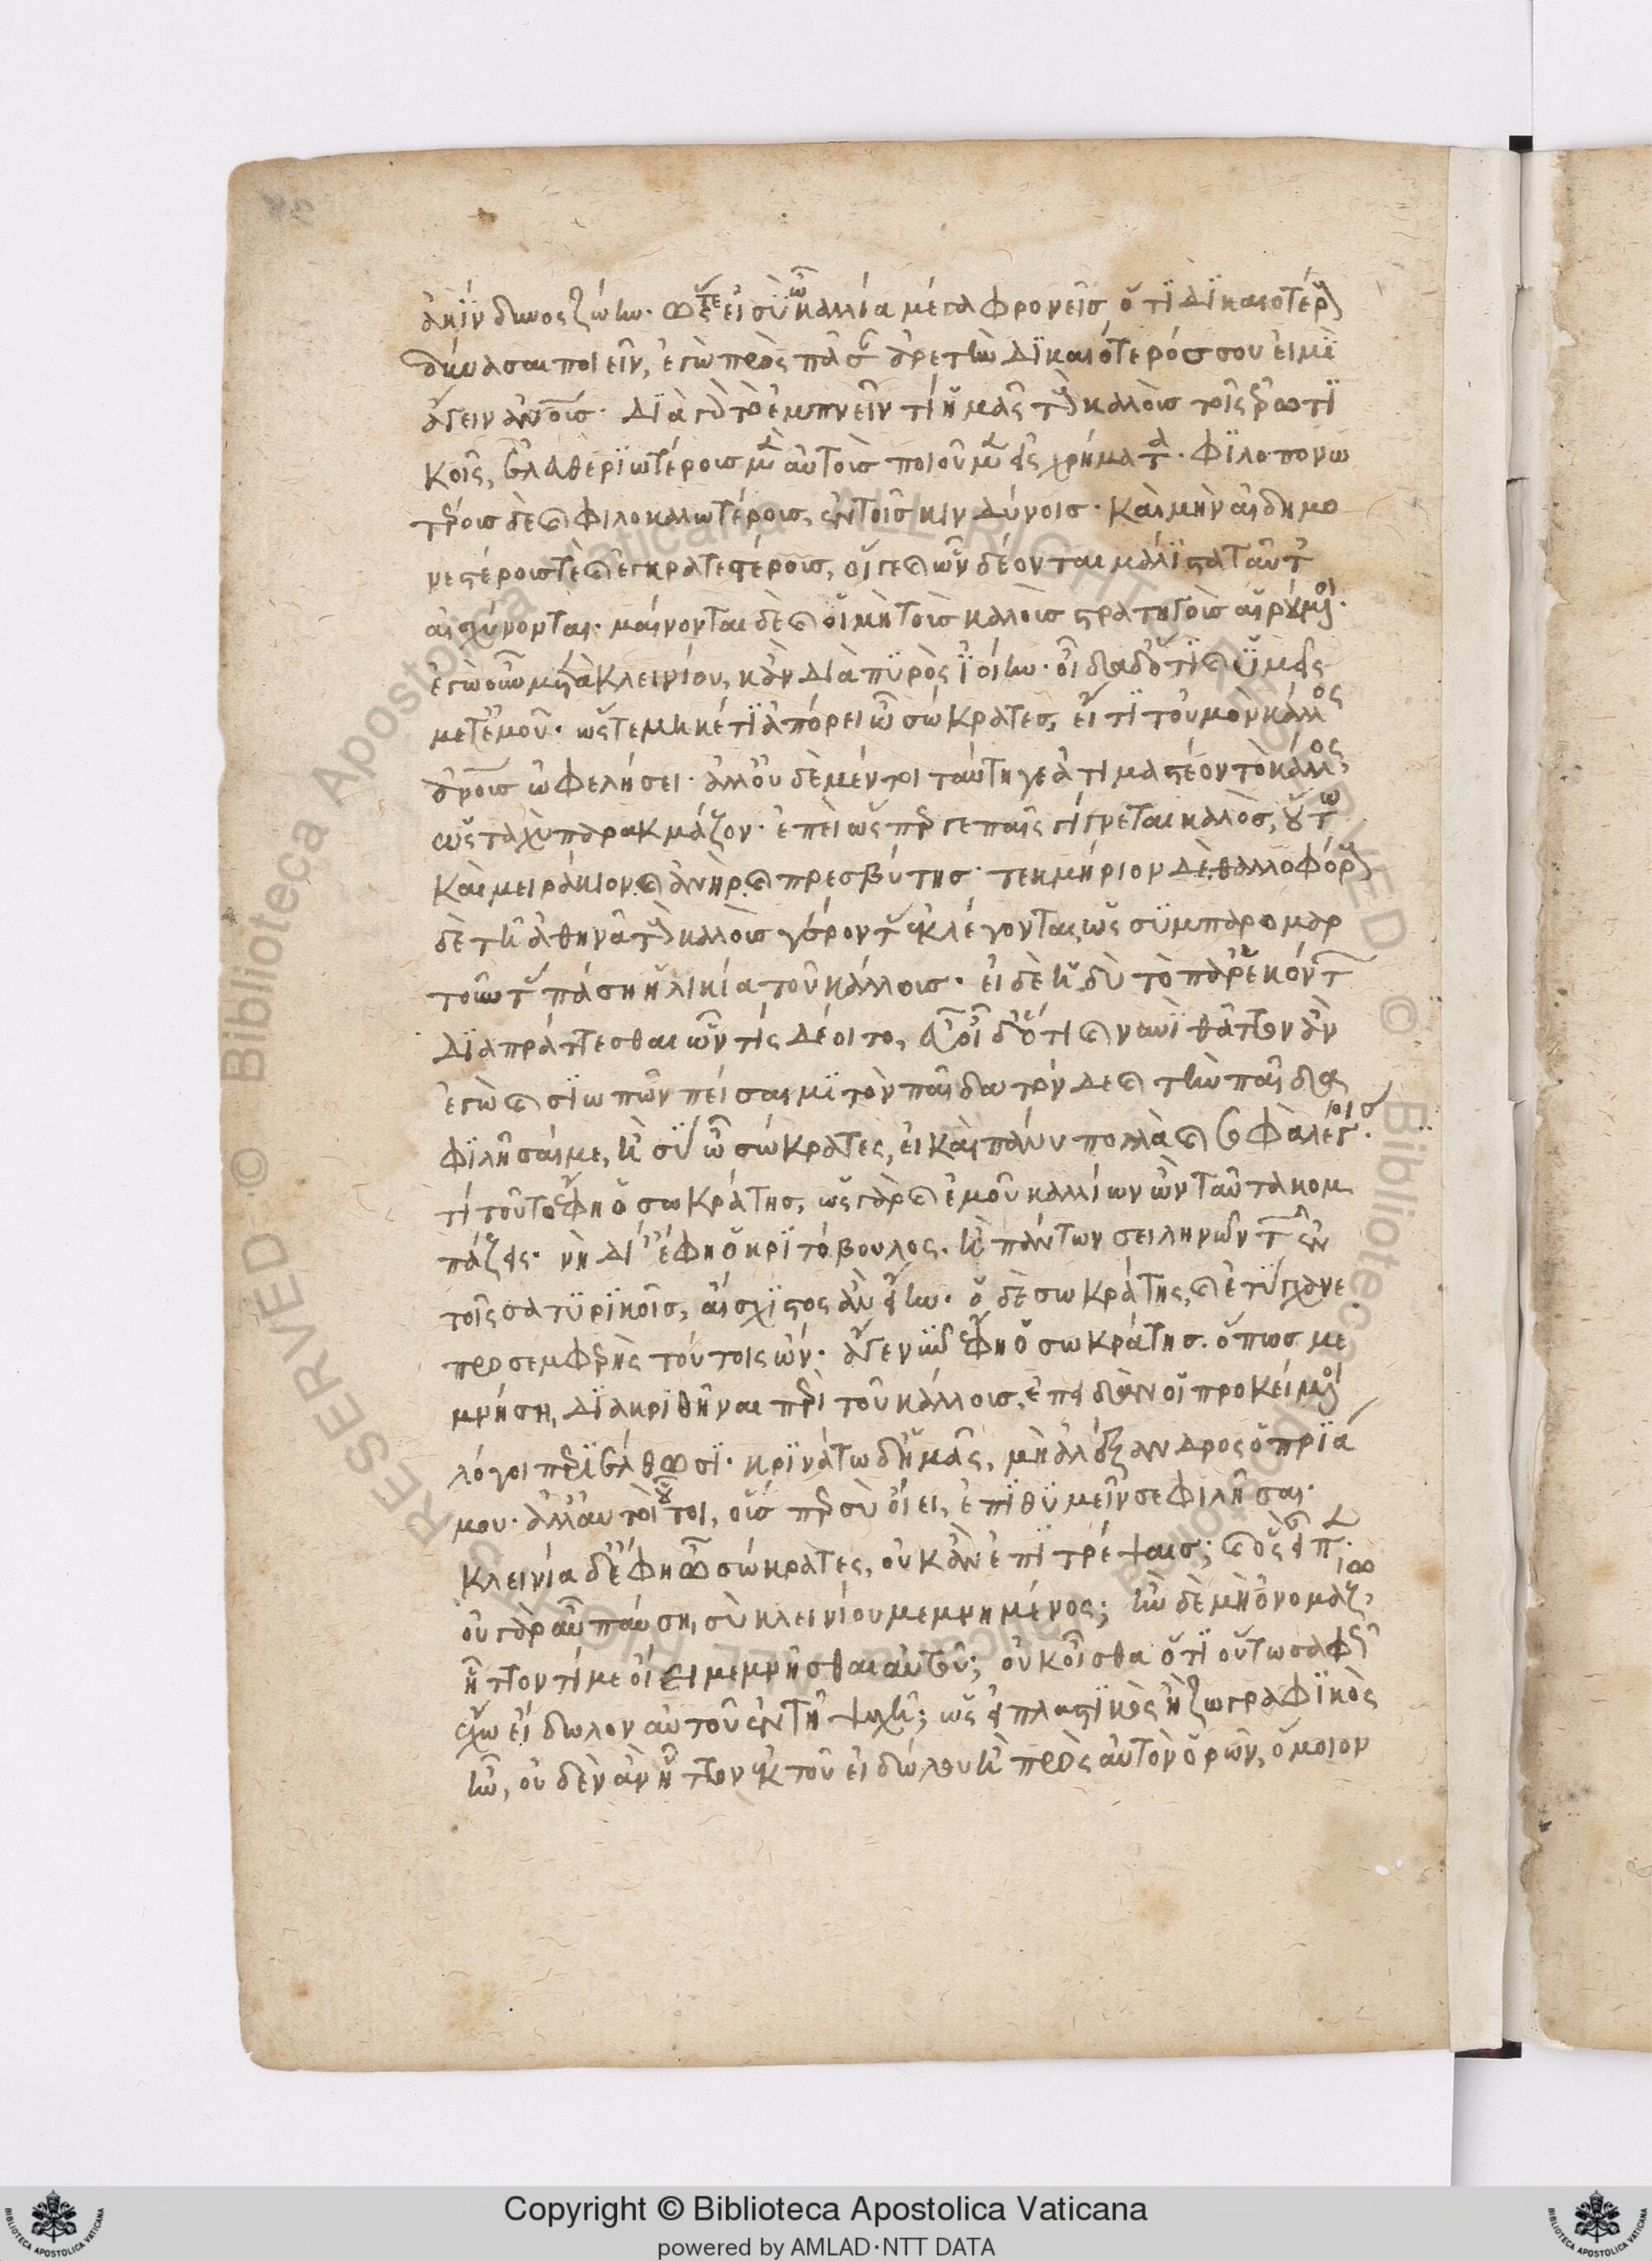 ἀκίνδυνος ζώην. ὥστε εἰ σὺ ὦ καλλία μέγα φρονεῖς, ὅτι δικαιοτέρους
δύνασαι ποιεῖν, ἐγὼ πρὸς πᾶσαν ἀρετὴν δικαιότερός σου εἰμὶ
ἄγειν ἀνθρώπους. διὰ γὰρ τὸ ἐμπνεῖν τί ἡμᾶς τοὺς καλοὺς τοῖς ἐρωτι
κοῖς, ἐλευθεριωτέρους μὲν αὐτοὺς ποιοῦμεν εἰς χρήματα. φιλοπονω
τέρους δὲ καὶ φιλοκαλωτέρους ἐν τοῖς κινδύνοις. καὶ μὴν αἰδημο
νεστέρους τὲ καὶ ἐγκρατεστέρους, οἵ γε καὶ ὧν δέονται μάλιστα ταῦτ
αἰσχύνονται. μαίνονται δὲ καὶ οἱ μὴ τοὺς καλοὺς στρατηγοὺς αἱρούμενοι.
ἐγὼ οὖν μετὰ κλεινίου, κἂν διὰ πυρὸς ἰοίην. οἶδα δ' ὅτι καὶ ὑμεῖς
μετ' ἐμοῦ. ὥστε μηκέτι ἀπόρει ὦ σώκρατες, εἴ τι τοὐμὸν κάλλος
ἀνθρώπους ὠφελήσει. ἀλλ' οὐδὲ μέντοι ταύτη γε ἀτιμαστέον τὸ κάλλος,
ὡς ταχὺ παρακμάζον. ἐπεὶ ὥσπερ γε παῖς γίγνεται καλὸς, οὕτω
καὶ μειράκιον καὶ ἀνὴρ καὶ πρεσβύτης. τεκμήριον δὲ. θαλλοφόρους
δὲ τῇ ἀθηνᾷ τοὺς καλοὺς γέροντας ἐκλέγονται, ὡς συμπαρομαρ
τοῦντος πάσῃ ἡλικίᾳ τοῦ κάλλους. εἰ δὲ ἡδὺ τὸ παρ' ἑκόντων
διαπράττεσθαι ὧν τίς δέοιτο, εὖ οἶδ' ὅτι καὶ νυνὶ θᾶττον ἂν
ἐγὼ καὶ σιωπῶν πείσαιμι τὸν παῖδα τόνδε καὶ τὴν παῖδα
φιλῆσαί με, ἢ σὺ ὦ σώκρατες, εἰ καὶ πάνυ πολλὰ καὶ σοφὰ λέγοις.
τί τοῦτο ἔφη ὁ σωκράτης, ὡς γὰρ καὶ ἐμοῦ καλλίων ὢν ταῦτα κομ
πάζεις. νὴ δί' ἔφη ὁ κριτόβουλος. ἢ πάντων σειληνῶν τῶν ἐν
τοῖς σατυρικοῖς, αἴσχιστος ἂν εἴην. ὁ δὲ σωκράτης, καὶ ἐτύγχανε
προσεμφερὴς τούτοις ὤν. ἄγε νῦν ἔφη ὁ σωκράτης. ὅπως με
μνήσῃ, διακριθῆναι περὶ τοῦ κάλλους, ἐπειδὰν οἱ προκείμενοι
λόγοι περιέλθωσι. κρινάτω δ' ἡμᾶς, μὴ ἀλέξανδρος ὁ πριά
μου. ἀλλ' αὐτοὶ οὗτοι, οὕσπερ σὺ οἴει, ἐπιθυμεῖν σε φιλῆσαι.
κλεινίᾳ δ' ἔφη ὦ σώκρατες, οὐκ ἂν ἐπιτρέψαις; καὶ ὃς εἶπεν.
οὐ γὰρ αὖ παύσῃ, σὺ κλεινίου μεμνημένος; ἢν δὲ μὴ ὀνομάζω,
ἧττον τί με οἴει μεμνῆσθαι αὐτοῦ; οὐκ οἶσθα ὅτι οὕτω σαφὲς
ἔχω εἴδωλον αὐτοῦ ἐν τῇ ψυχῇ; ὡς εἰ πλαστικὸς ἢ ζωγραφικὸς
ἦν, οὐδὲν ἂν ἧττον ἐκ τοῦ εἰδώλου ἢ πρὸς αὐτὸν ὁρῶν, ὅμοιον
Copyright © Biblioteca Apostolica Vaticana
powered by AMLAD·NTT DATA